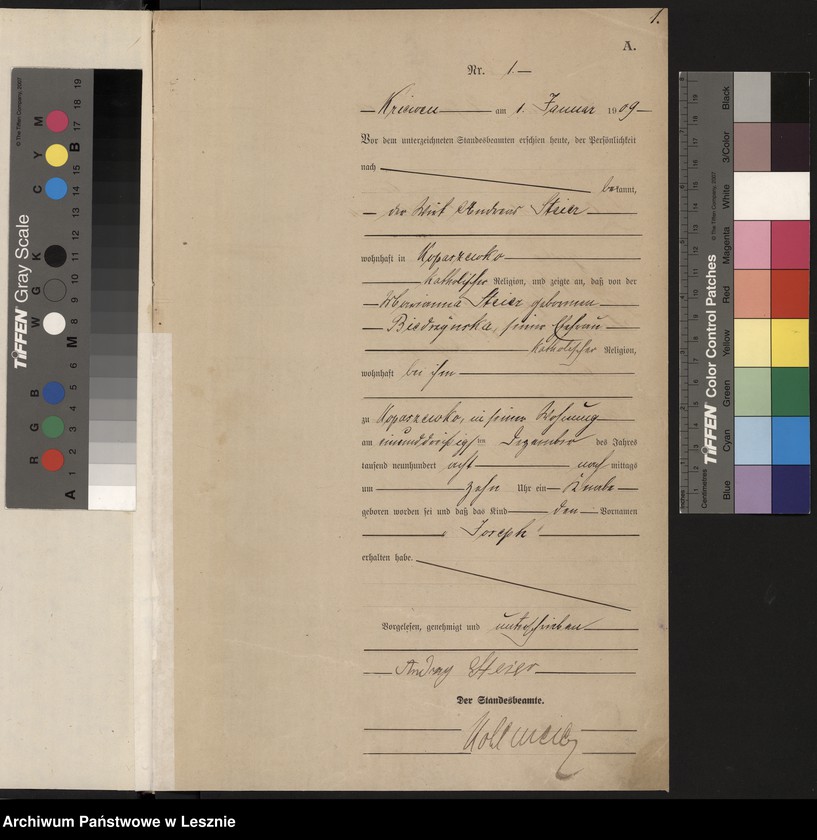 1.
A.
Nr. 1
Kriewen am 1. Januar 1909
Vor dem unterzeichneten Standesbeamten erschien heute, der Persönlichkeit
nach
bekannt,
der Wirt Andreas Steier
wohnhaft in Koparzewko
katholischer Religion, und zeigte an, daß von der
Marianna Steier geborenen
Biedrzynska, seiner Ehefrau
katholischer Religion,
wohnhaft bei ihm
zu Koparzewko, in seiner Wohnung
am einunddreißigsten Dezember des Jahres
tausend neunhundert acht nach mittags
um zehn Uhr ein Knabe
geboren worden sei und daß das Kind den Vornamen
Joseph
erhalten habe.
Vorgelesen, genehmigt und unterschrieben
Andrzy Steier
Der Standesbeamte.
TIFFEN Gray Scale
© The Tiffen Company, 2007
R G B W G K C Y M
A 1 2 3 4 5 6 M 8 9 10 11 12 13 14 15 B 17 18 19
TIFFEN Color Control Patches
© The Tiffen Company, 2007
Inches
Centimetres
Blue
Cyan
Green
Yellow
Red
Magenta
White
3/Color
Black
Archiwum Państwowe w Lesznie